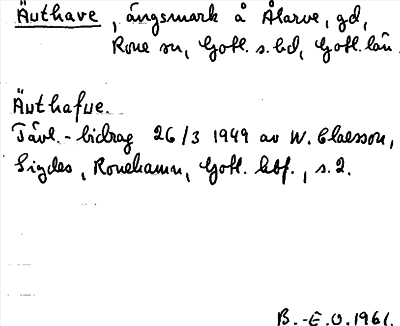 Äuthave, ängsmark å Ålarve, gd,
Rone sn, Gotl. s. hd, Gotl. län.
Äuthafve.
Tävl.-bidrag 26/3 1949 av W. Claesson,
Sigdes, Ronehamn, Gotl. , s. 2.
B.-E.O. 1961.